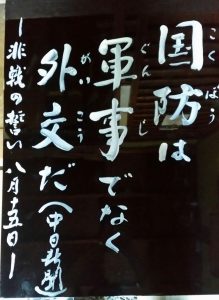 こくぼう
国防は
ぐんじ
軍事でなく
がいこう
外交だ(中日新聞)
―非戦の誓い 八月十五日―